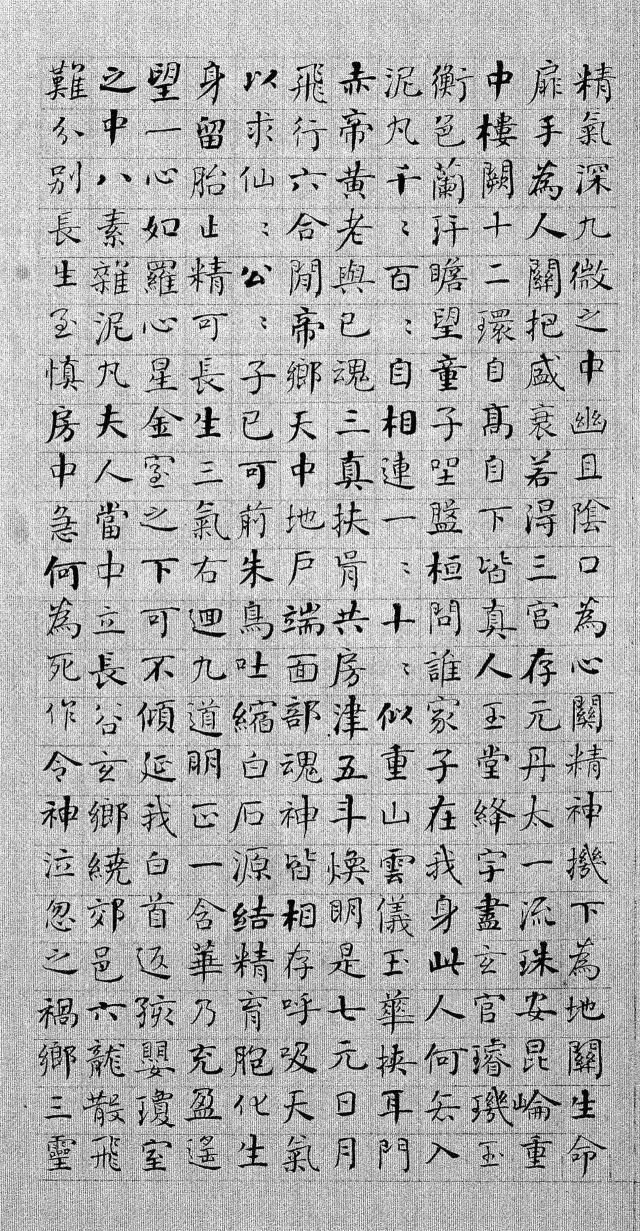 精氣深九微之中幽且陰口為心關精神機下為地關生命
扉手為人關把盛衰若得三宮存元丹太一流珠安昆崙重
中樓闕十二環自高自下皆真人玉堂絳宇盡玄官璿璣玉
衡色蘭玕瞻望童子坐盤桓問誰家子在我身此人何去入
泥丸千〻百〻自相連一〻十〻似重山雲儀玉華挾耳門
赤帝黃老與己魂三真扶胥共房津五斗煥明是七元日月
飛行六合閒帝鄉天中地戶端面部魂神皆相存呼吸天氣
以求仙〻公〻子已可前朱鳥吐縮白石源結精育胞化生
身留胎止精可長生三氣右迴九道明正一含華乃充盈遙
望一心如羅心星金室之下可不傾延我白首返孩嬰瓊室
之中八素雜泥丸夫人當中立長谷玄鄉繞郊邑六龍散飛
難分別長生至慎房中急何為死作令神泣忽之禍鄉三靈